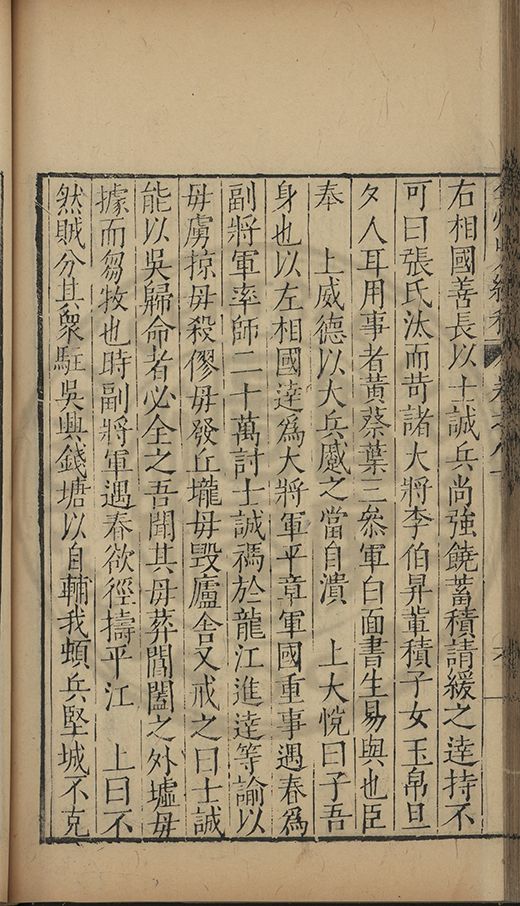 右相國善長以士誠兵尚強饒蓄積請緩之達持不
可曰張氏汰而苛諸大將李伯昇輩積子女玉帛旦
夕人耳用事者黃蔡葉三叅軍白面書生易與也臣
奉　上威德以大兵蹙之當自潰　上大悅曰子吾
身也以左相國達爲大將軍平章軍國重事遇春爲
副將軍率師二十萬討士誠禡於龍江進達等諭以
毋虜掠毋殺僇毋發丘壠毋毀廬舍又戒之曰士誠
能以吳歸命者必全之吾聞其母葬閶闔之外墟毋
據而芻牧也時副將軍遇春欲徑擣平江　上曰不
然賊分其衆駐吳興錢塘以自輔我頓兵堅城不克